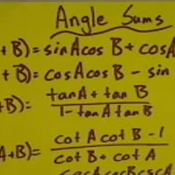 Angle Sums
+ B) = sin A cos B + cos A
+ B) = cos A cos B - sin
+B) = tan A + tan B / 1 - tan A tan B
A+B) = cot A cot B - 1 / cot B + cot A